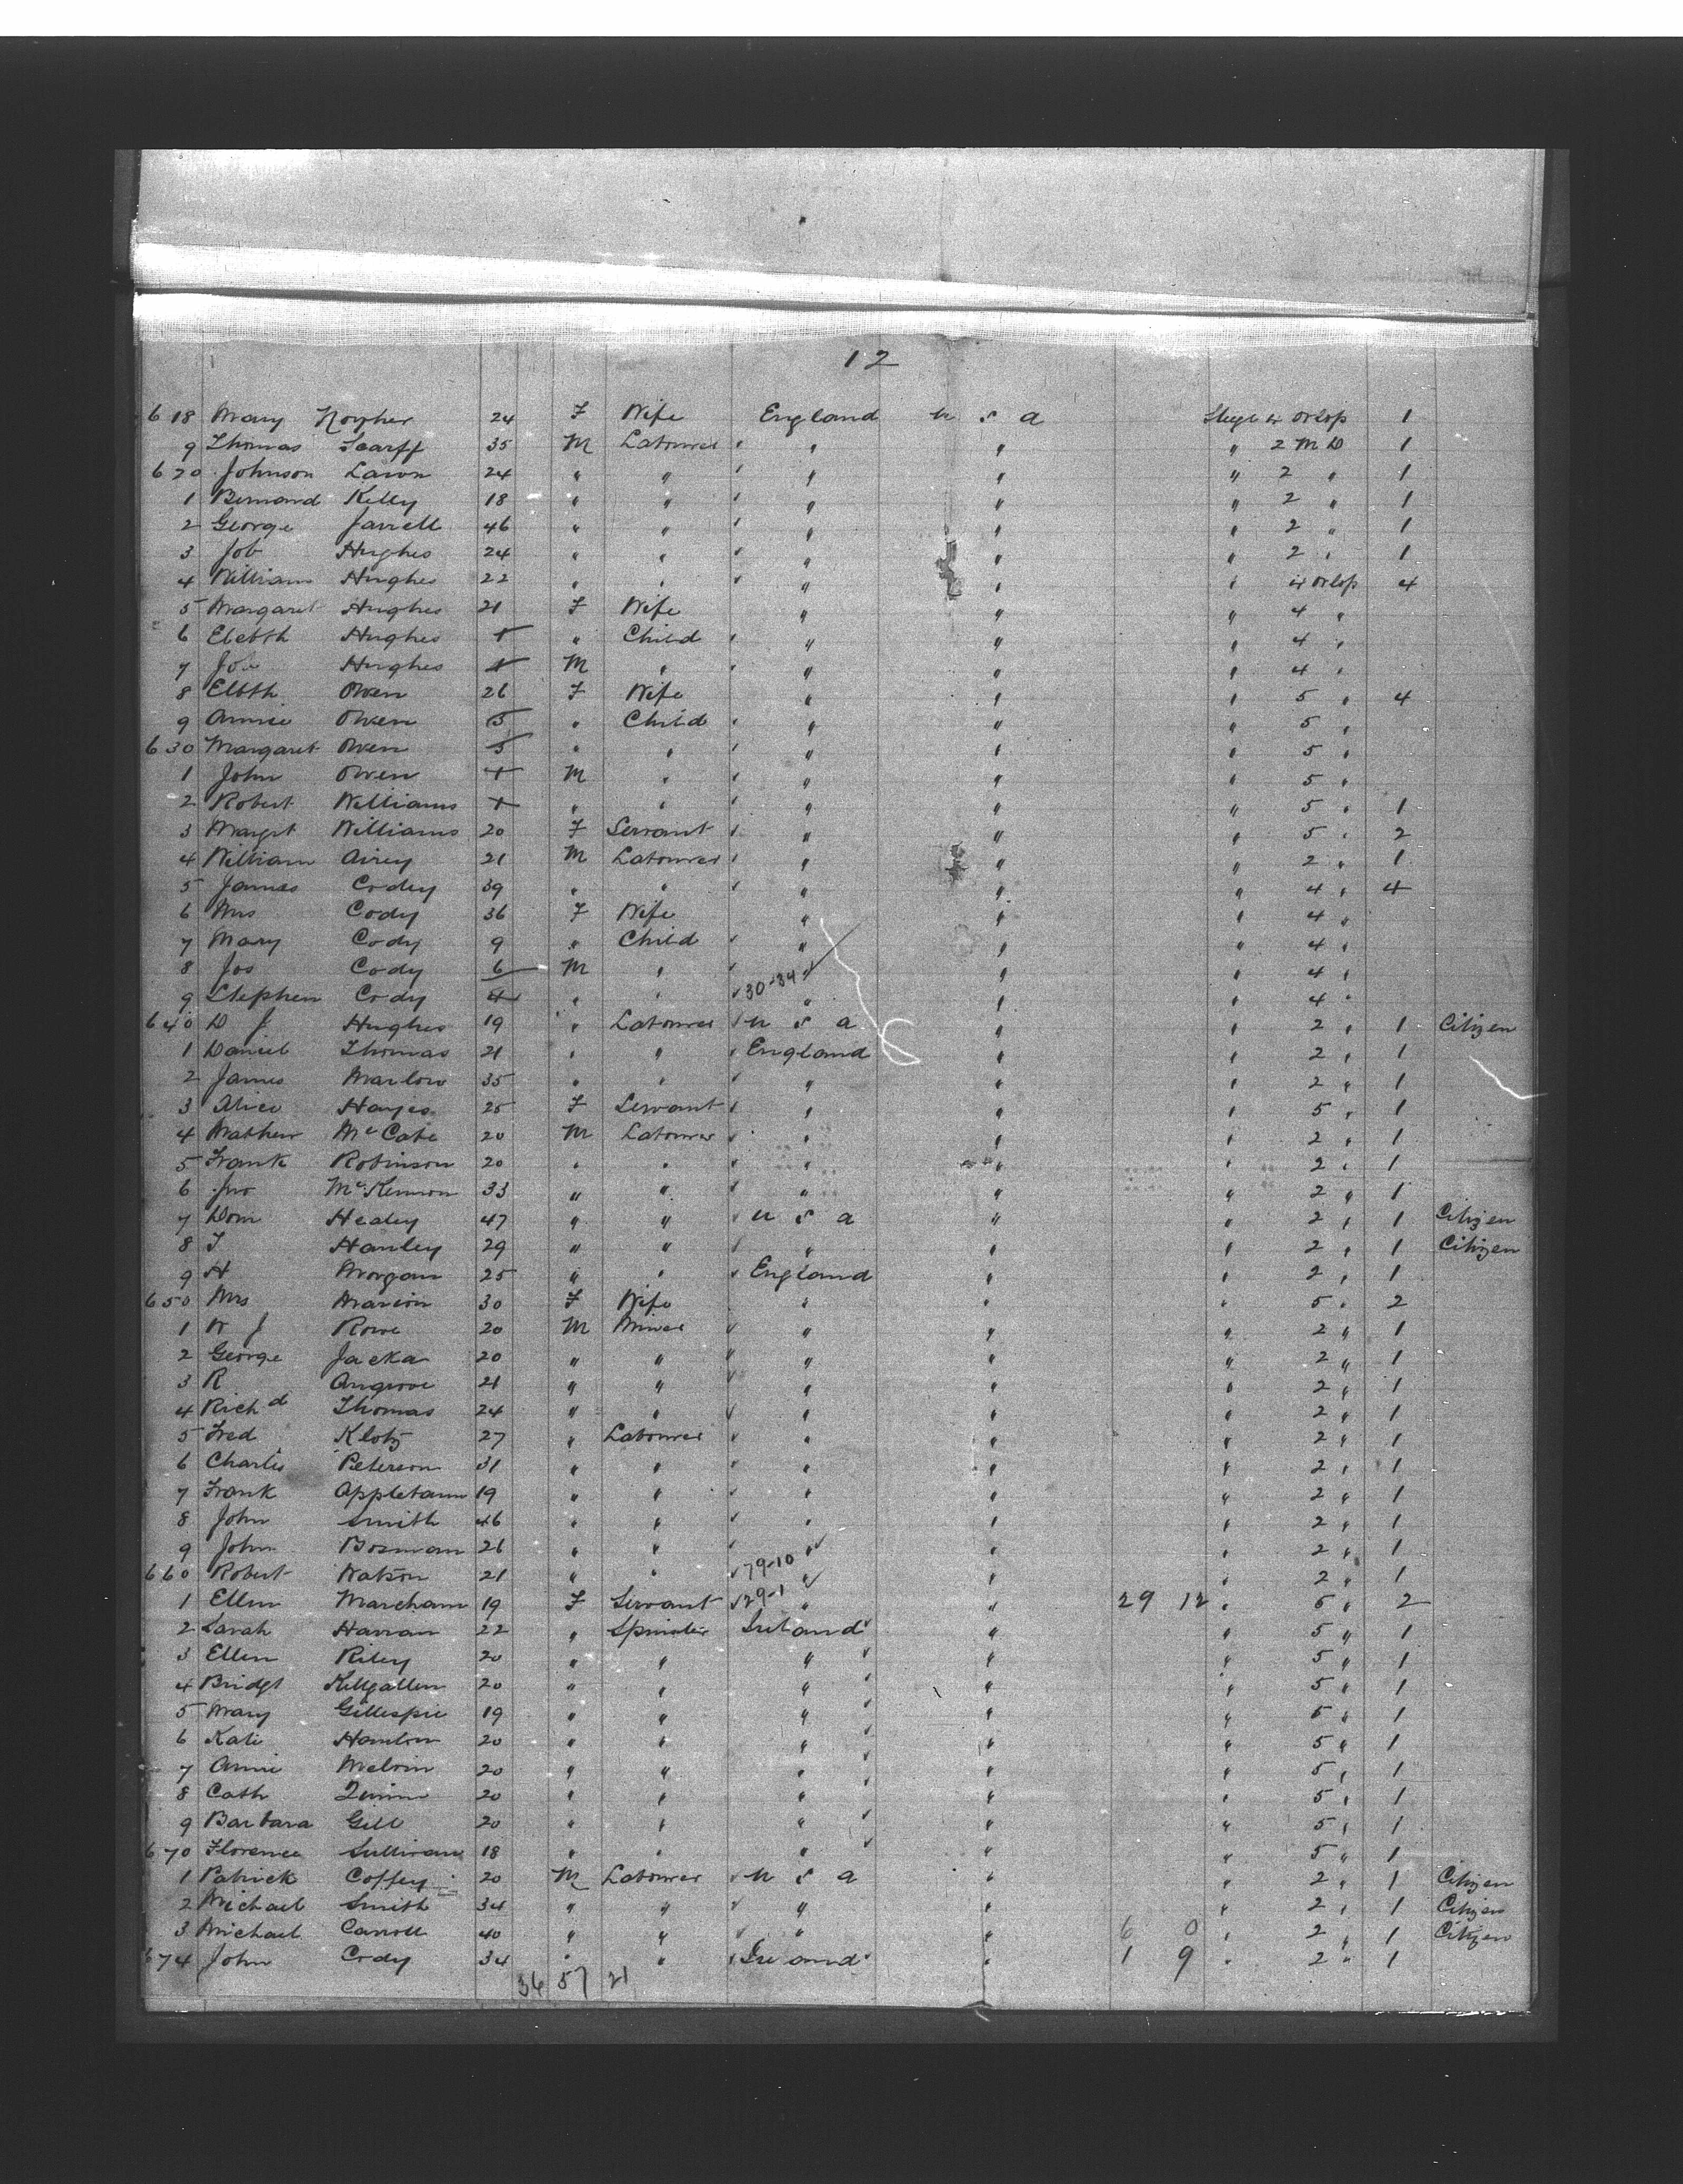 12
618 Mary 24 F Wife England U S A Stege 4 Orlop 1
9 Thomas Scarff 35 M Labourer " " " 2 M D 1
620 Johnson Lawn 24 " " " " " 2 " 1
1 Bernard Kelly 18 " " " " " 2 " 1
2 George Jarrell 46 " " " " " 2 " 1
3 Job Hughes 24 " " " " " 2 " 1
4 William Hughes 22 " " " " " 4 Orlop 4
5 Margaret Hughes 21 F Wife " " " 4 "
6 Elebth Hughes " Child " " " 4 "
7 Hughes M " " " " 4 "
8 Elbth Owen 26 F Wife " " " 5 " 4
9 Annie Owen " Child " " " 5 "
630 Margaret Owen 5 " " " " " 5 "
1 John Owen M " " " " 5 "
2 Robert Williams " " " " " 5 " 1
3 Margrt Williams 20 F Servant " " " 5 " 2
4 William Airey 21 M Labourer " " " 2 " 1
5 James Cody 39 " " " " " 4 " 4
6 Mrs Cody 36 F Wife " " " 4 "
7 Mary Cody 9 " Child " " " 4 "
8 Jos Cody 6 M " " " " 4 "
9 Stephen Cody 4 " " 30-34 " " " 4 "
640 D J Hughes 19 " Labourer U S A " " 2 " 1 Citizen
1 Daniel Thomas 21 " " England " " 2 " 1
2 James Marlow 35 " " " " " 2 " 1
3 Alice Hayes 25 F Servant " " " 5 " 1
4 Mathew McCabe 20 M Labourer " " " 2 " 1
5 Frank Robinson 20 " " " " " 2 " 1
6 Jno McKennon 33 " " " " " 2 " 1
7 Dom Healey 47 " " U S A " " 2 " 1 Citizen
8 T Hanley 29 " " " " " 2 " 1 Citizen
9 H Morgan 25 " " England " " 2 " 1
650 Mrs Marion 30 F Wife " " " 5 " 2
1 W J Rowe 20 M Miner " " " 2 " 1
2 George Jacka 20 " " " " " 2 " 1
3 R Angrove 21 " " " " " 2 " 1
4 Richd Thomas 24 " " " " " 2 " 1
5 Fred Klotz 27 " Labourer " " " 2 " 1
6 Charles Peterson 31 " " " " " 2 " 1
7 Frank Appletann 19 " " " " " 2 " 1
8 John Smith 46 " " " " " 2 " 1
9 John Bosman 26 " " " " " 2 " 1
660 Robert Watson 21 " " 79-10 " " " 2 " 1
1 Ellen Marcham 19 F Servant 29-1 " " 29 12 " 5 " 2
2 Sarah Harran 22 " Spinster Ireland " " 5 " 1
3 Ellen Riley 20 " " " " " 5 " 1
4 Bridgt Killgallen 20 " " " " " 5 " 1
5 Mary Gillespie 19 " " " " " 5 " 1
6 Kate Hanlon 20 " " " " " 5 " 1
7 Annie Melvin 20 " " " " " 5 " 1
8 Cath Quinn 20 " " " " " 5 " 1
9 Barbara Gill 20 " " " " " 5 " 1
670 Florence Sullivan 18 " " " " " 5 " 1
1 Patrick Coffey 20 M Labourer U S A " " 2 " 1 Citizen
2 Michael Smith 34 " " " " " 2 " 1 Citizen
3 Michael Carroll 40 " " " " 6 0 " 2 " 1 Citizen
674 John Cody 34 " " Ireland " 1 9 " 2 " 1
36 57 21